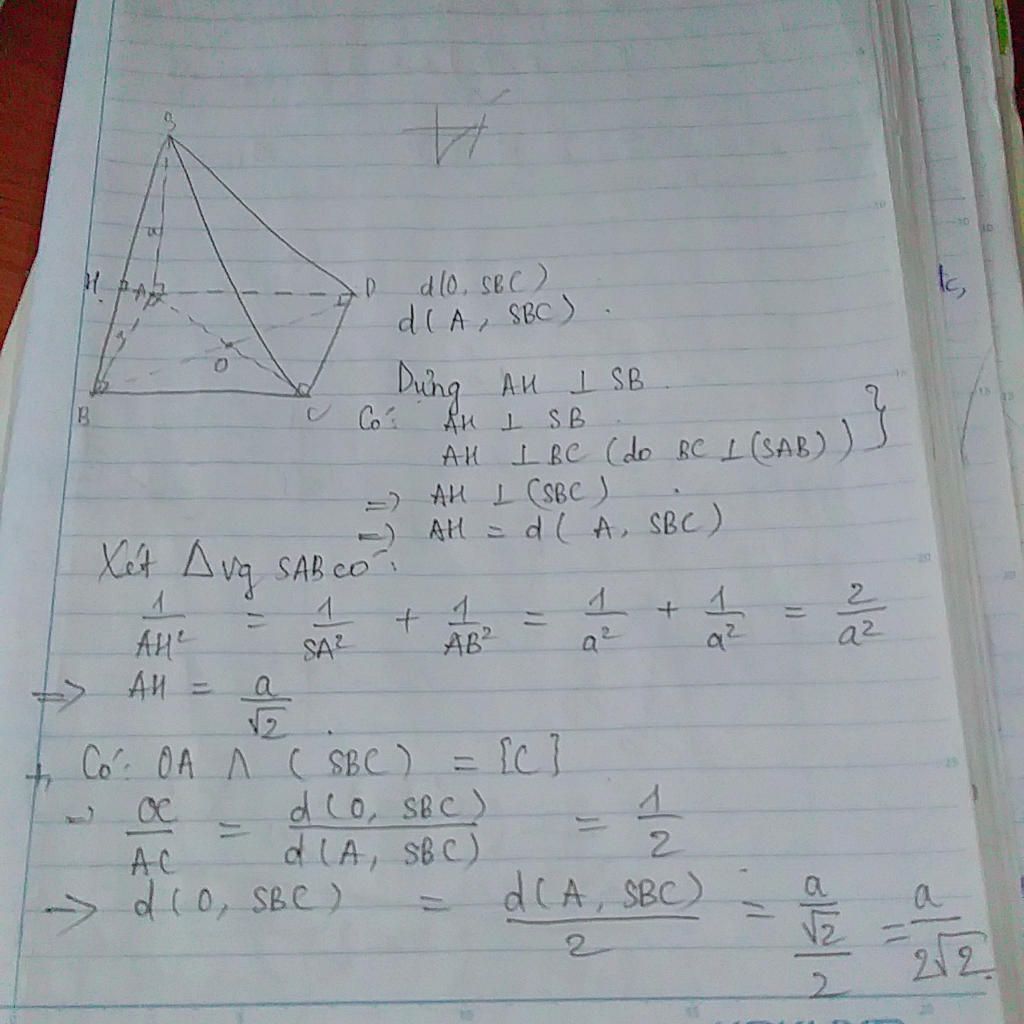 S
a
H A D d(O, SBC)
a d(A, SBC).
O
B C
Dựng AH ⊥ SB.
Có: AH ⊥ SB.
AH ⊥ BC (do BC ⊥ (SAB)) }
=> AH ⊥ (SBC).
=> AH = d(A, SBC)
Xét Δvg SAB có:
1/AH² = 1/SA² + 1/AB² = 1/a² + 1/a² = 2/a²
=> AH = a/√2.
+, Có: OA ∩ (SBC) = {C}
=> OC/AC = d(O, SBC)/d(A, SBC) = 1/2
=> d(O, SBC) = d(A, SBC)/2 = (a/√2)/2 = a/(2√2).